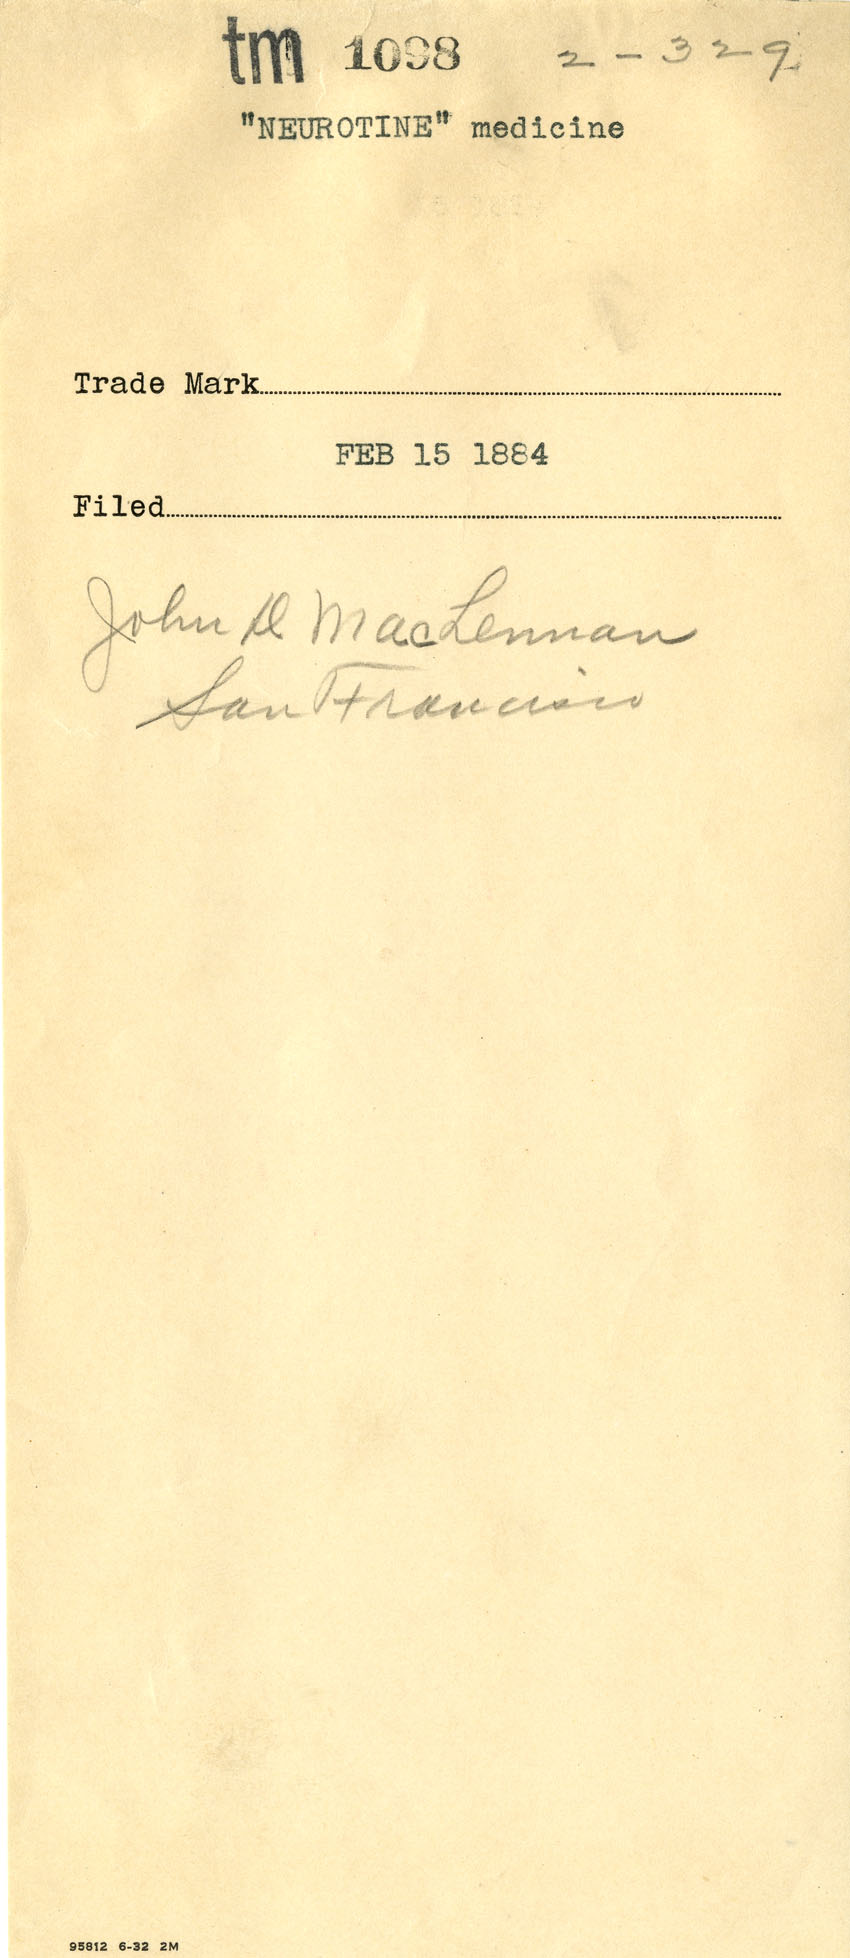 tm 1098 2-329
"NEUROTINE" medicine
Trade Mark
FEB 15 1884
Filed
John D MacLennan
San Francisco
95812 6-32 2M